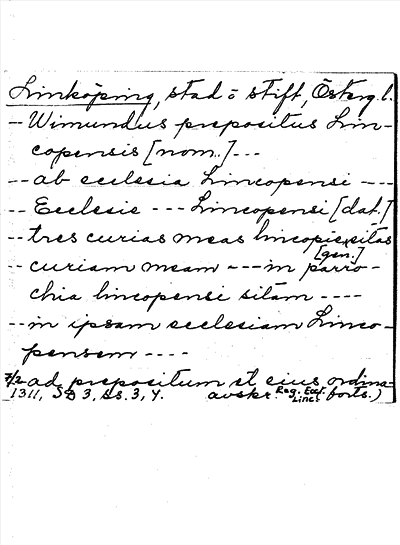 Linköping, stad o stift, Österg. l.
-- Wimundus prepositus Lin-
copensis [nom.] ---
-- ab ecclesia Lincopensi ---
-- Ecclesie --- Lincopensi [dat.]
-- tres curias meas lincopie sitas
[gen.]
-- curiam meam --- in parro-
chia lincopensi sitam ----
-- in ipsam ecclesiam Linco-
pensem ----
-- ad prepositum et eius ordina-
7/2 1311, SD 3, s. 3, 4. avskr. Reg. Eccl. Linc. forts.)